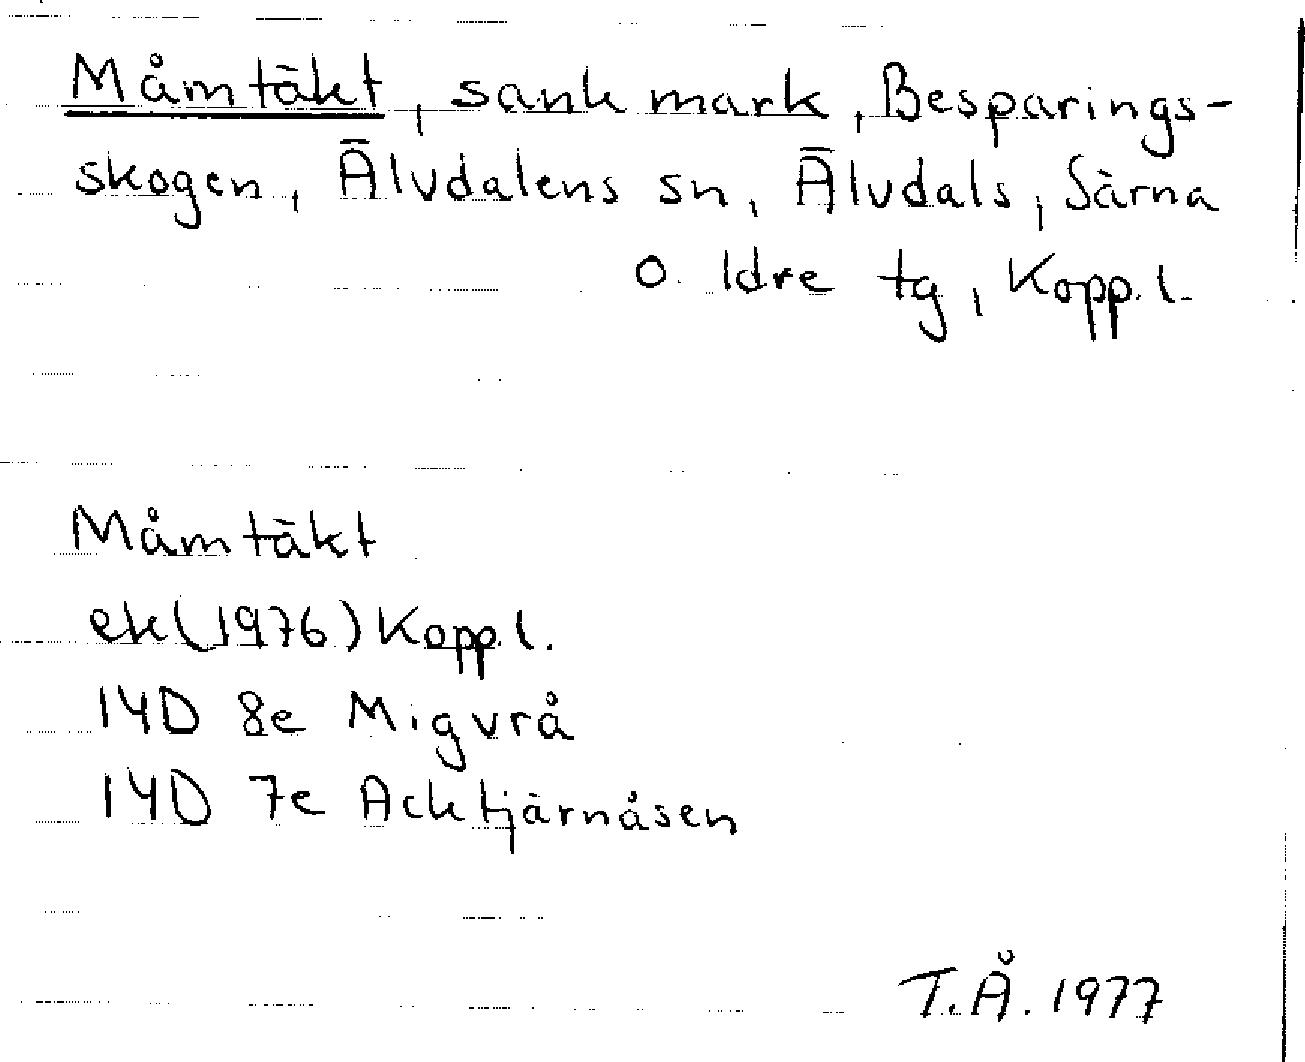 Måmtäkt, sank mark, Besparings-
skogen, Älvdalens sn, Älvdals, Särna
o. Idre tg, Kopp. l.
Måmtäkt
ek (1976) Kopp. l.
14D 8e Migvrå
14D 7e Acktjärnåsen
T.Å. 1977